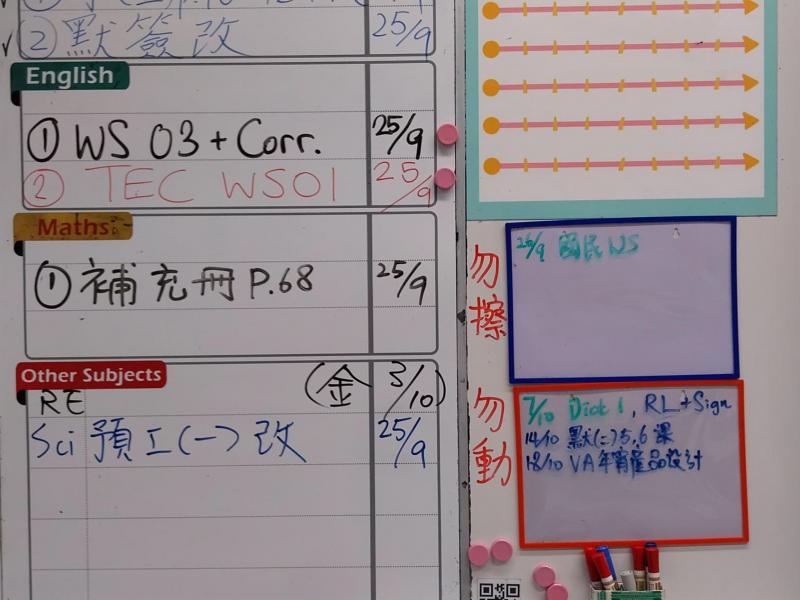 ② 默簽改 25/9
English
① WS 03 + Corr. 25/9
② TEC WS01 25/9
Maths
① 補充冊 P.68 25/9
Other Subjects
RE (金 3/10)
Sci 預工(一)改 25/9
勿擦
26/9 國民WS
勿動
7/10 Dict 1, RL+Sign
14/10 默(二)5,6課
18/10 VA年宵產品設計